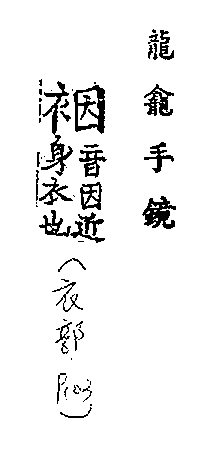 龍龕手鏡
裀音因近身衣也
（衣部